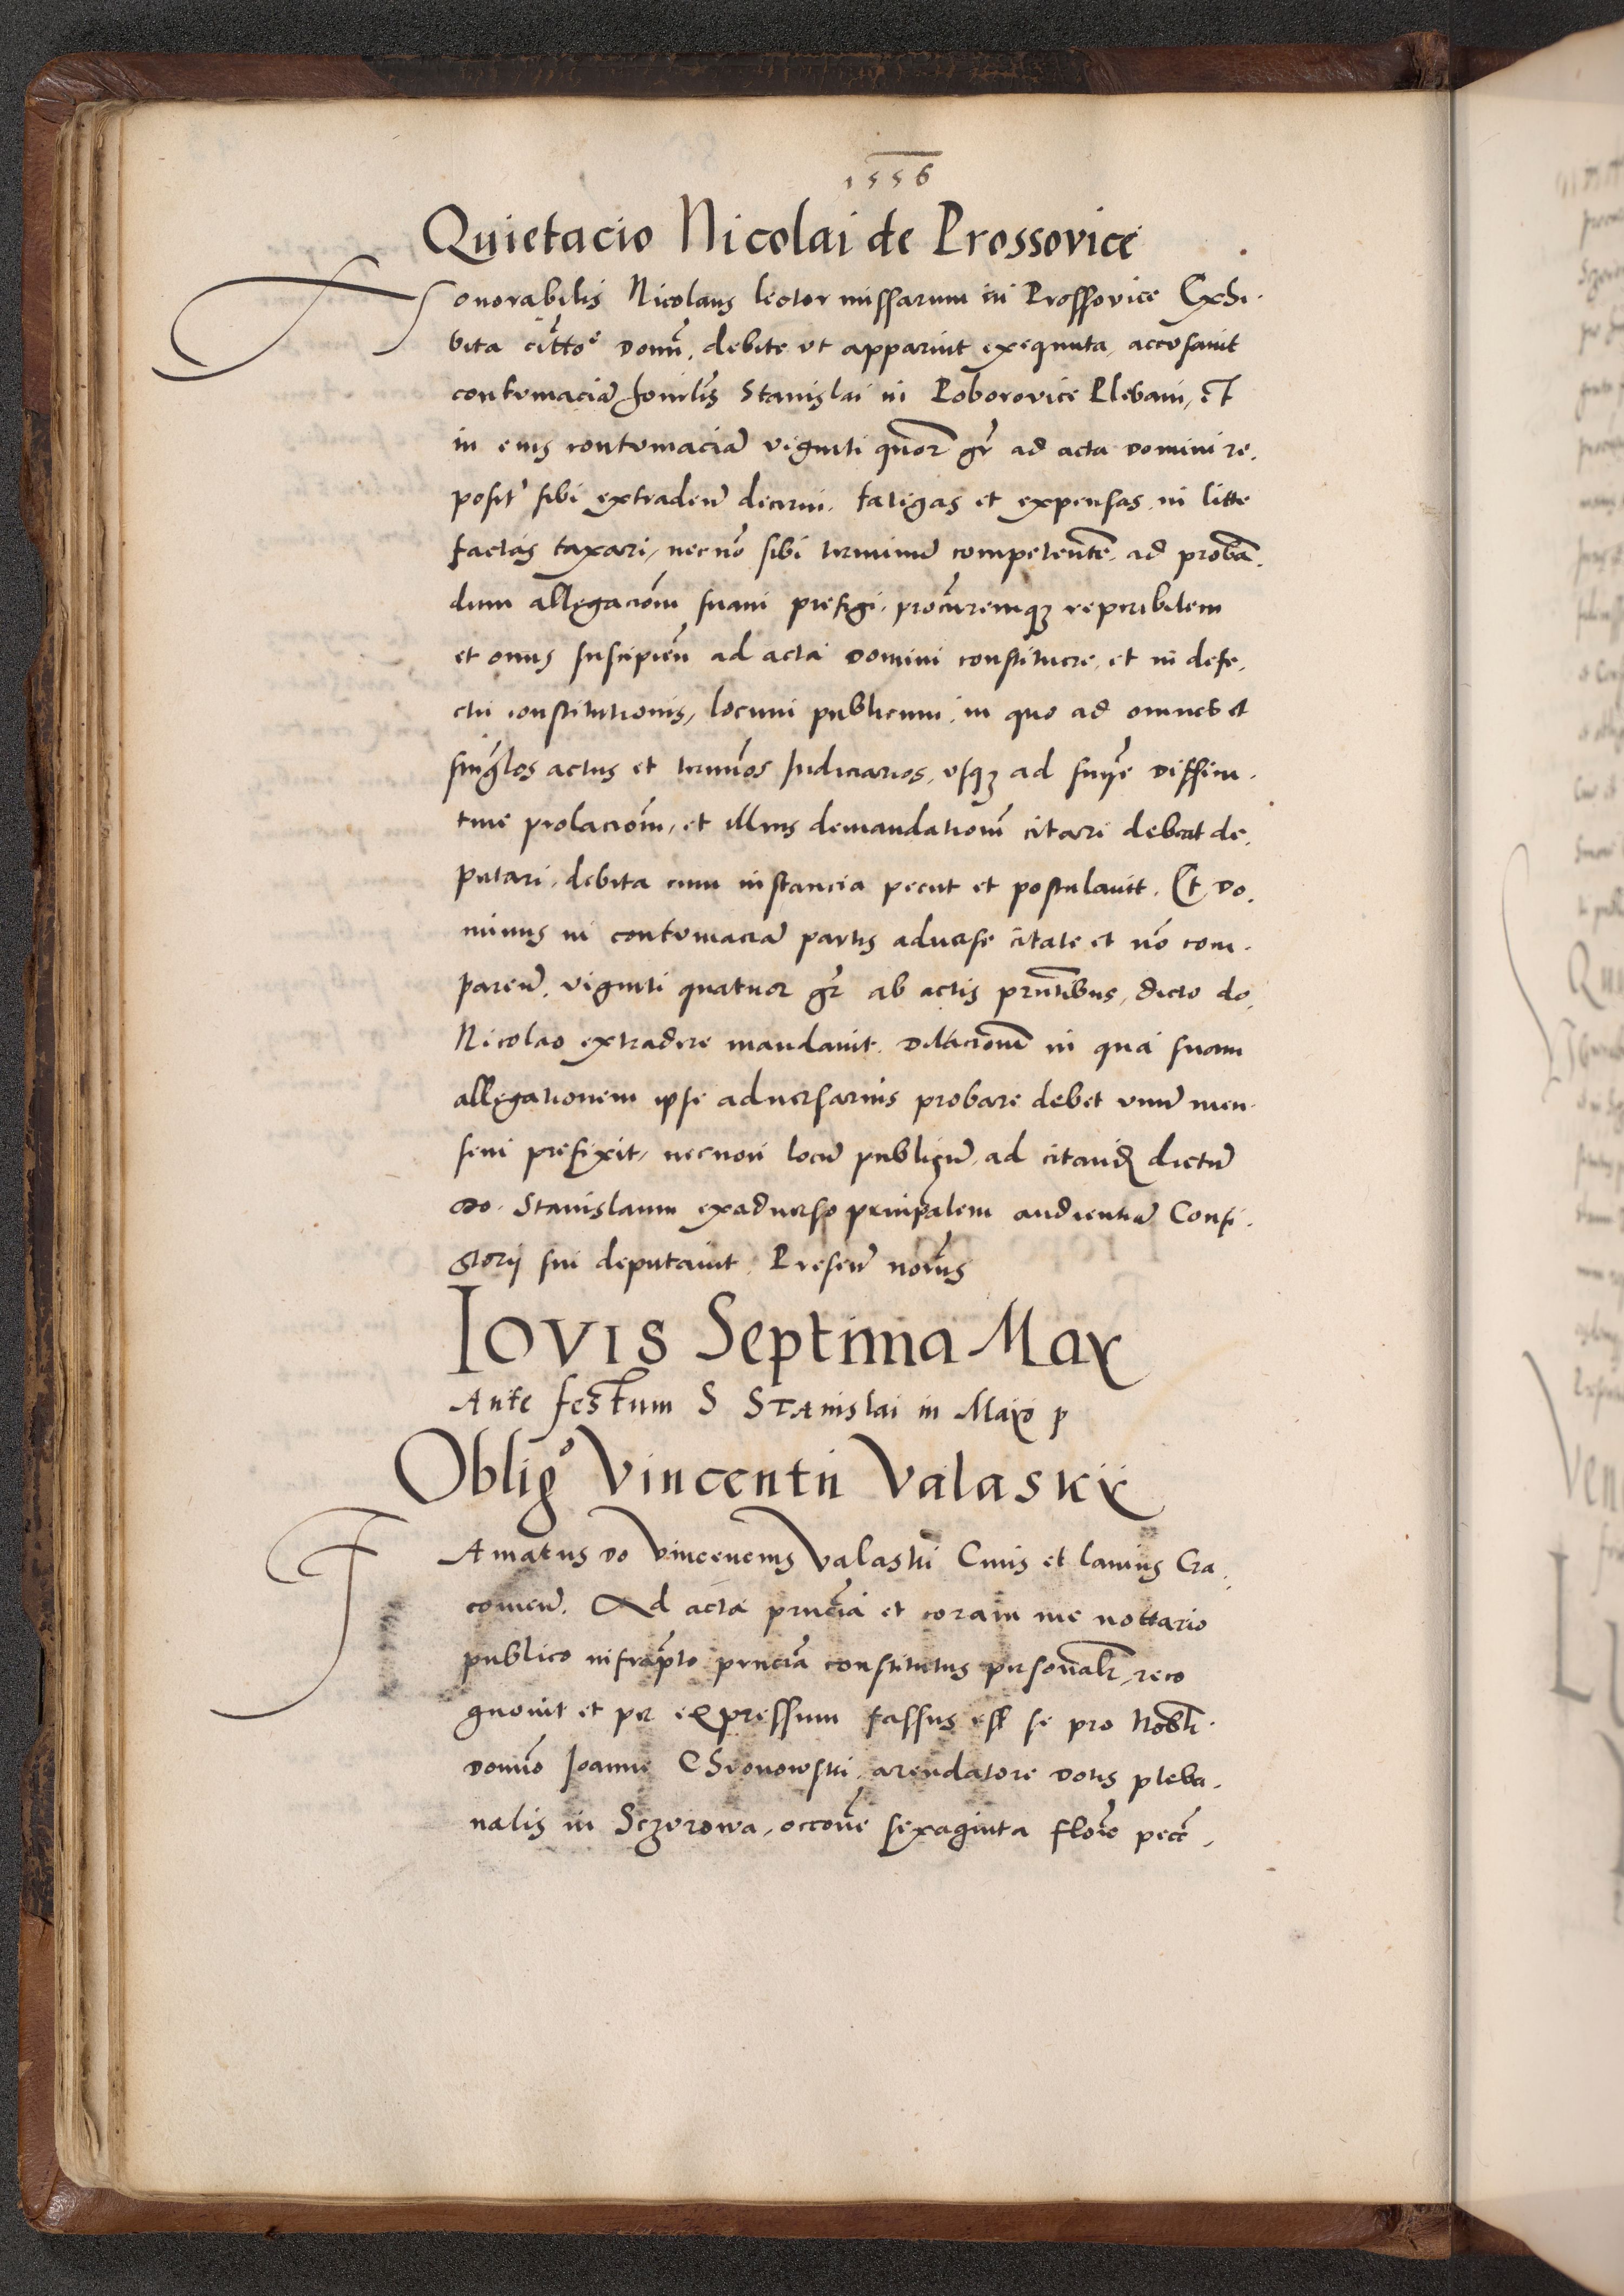 1556
Quietacio Nicolai de Prossovice
Honorabilis Nicolaus lector missarum in Prossovice Exhi.
bita citto͂e domi͂. debite ut apparuit exequuta, accusavit
contumaciã honrlis͂ Stanislai in Poborovice Plebani, et
in eius contumaciã viginti quor͂ gr͂ ad acta domini re.
posit' sibi extraden͂ decerni. fatigas et expensas in litte
factas taxari, necno͂ sibi terminu͂ competente͂. ad proba͂.
dum allegacio͂m suam prefigi. procu͂remq3 reperibilem
et onus suscipien͂ ad acta domini constituere, et in defe.
ctu constitutionis, locum publicum, in quo ad omnes et
sing͂los actus et termi͂os Judiciarios, usq3 ad sn͂ie diffini.
tive prolacio͂m, et illius demandationi͂ citari debeat de.
putari, debita cum instancia peciit et postulavit. Et Do.
minus in contumaciã partis adverse citate et no͂ com.
paren͂. viginti quatuor gr͂ ab actis prn͂tibus, dicto do.
Nicolao extradere mandavit. Dilacione͂ in qua suam
allegationem ipse adversarius probare debet unu͂ men.
sem prefixit, necnon locu͂ publicu͂, ad citand͂ dictu͂
do. Stanislaum exadverso principalem audientiã Consi.
storij sui deputavit. Presen͂ no͂rius
Iovis Septima Maÿ
Ante festum S Stanislai in Maÿo p
Oblig͂o Vincentii Valaskÿ
Famatus do Vincencius Valaski Civis et lanius Cra.
covien͂. Ad acta prn͂cia et coram me nottario
publico infrap͂to prn͂cia constitutus personal͂r, reco
gnovit et per expressum fassus est se pro Nobli͂.
domi͂o Joanne Chronowski, arendatore dotis pleba.
nalis in Sczurowa, occo͂ne sexaginta flore͂ pece͂.